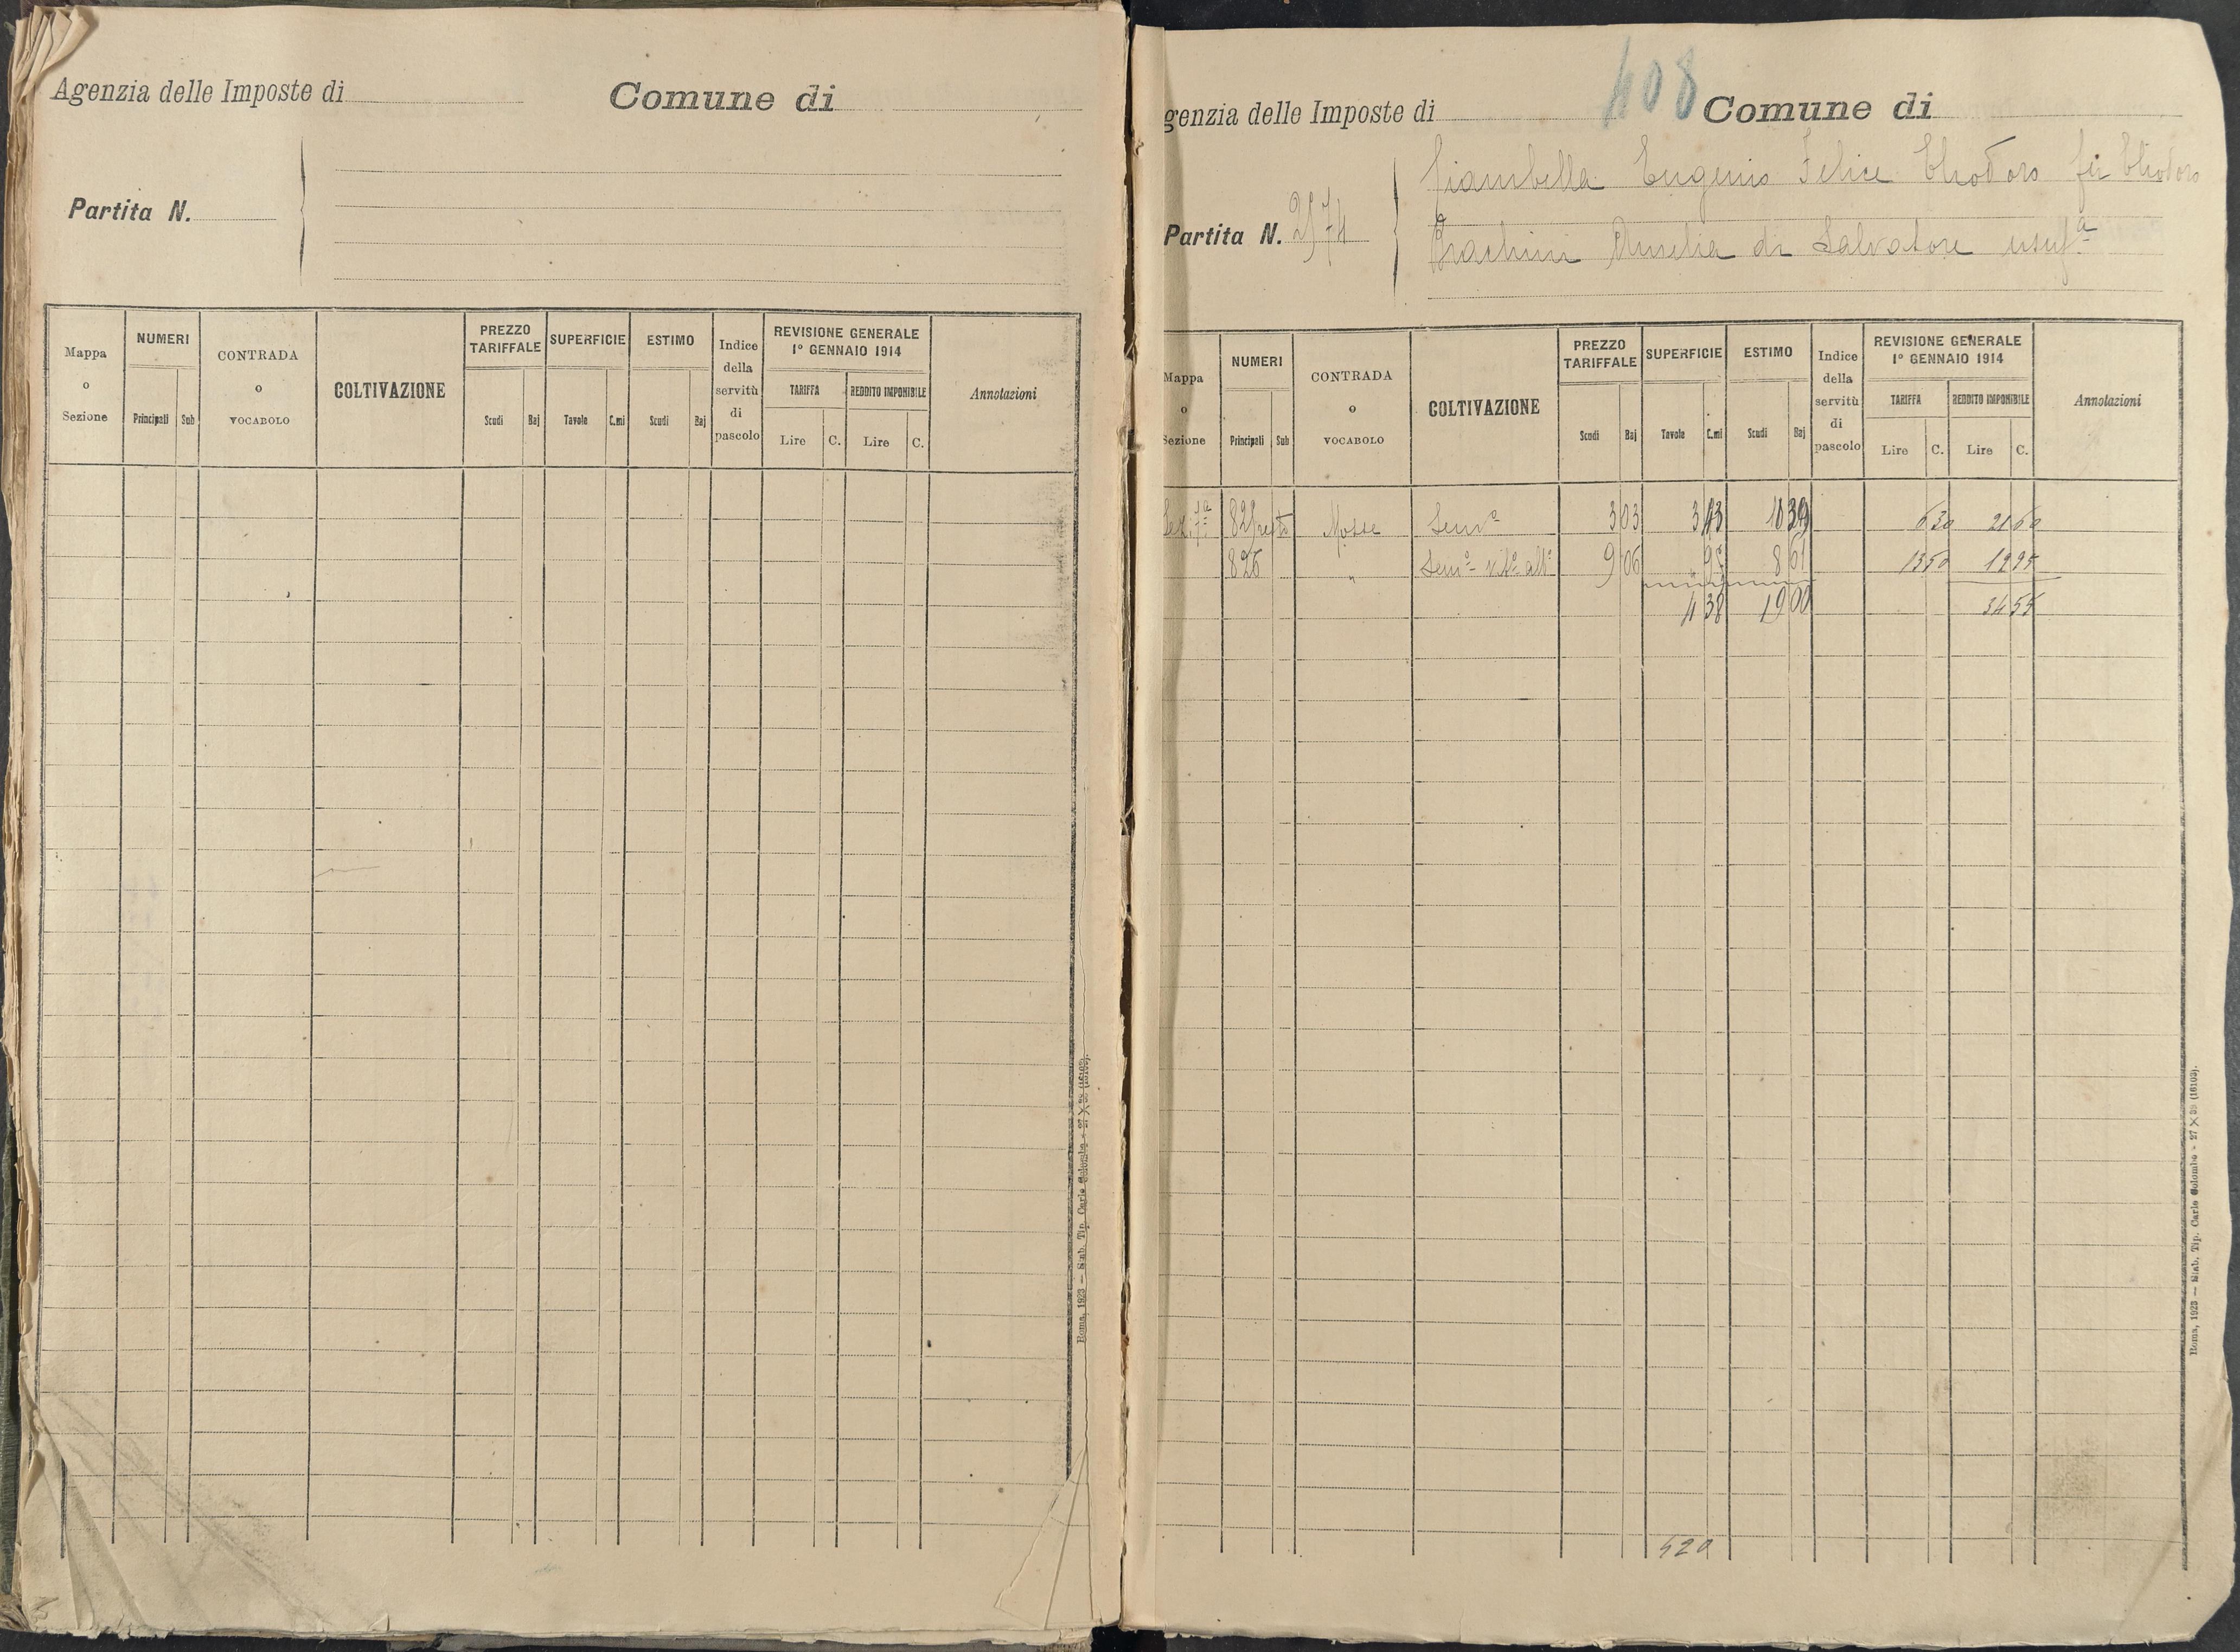 Agenzia delle Imposte di Comune di
Partita N.
Mappa o Sezione
NUMERI
Principali Sub
CONTRADA o VOCABOLO
COLTIVAZIONE
PREZZO TARIFFALE
Scudi Baj
SUPERFICIE
Tavole C.mi
ESTIMO
Scudi Baj
Indice della servitù di pascolo
REVISIONE GENERALE
1° GENNAIO 1914
TARIFFA
Lire C.
REDDITO IMPONIBILE
Lire C.
Annotazioni
Roma, 1923 — Stab. Tip. Carlo Colombo - 27 × 39 (16103).
408
genzia delle Imposte di Comune di
Eugenio Felice
Partita N. 2574
Amelia di Salvatore usufª
Mappa o Sezione
NUMERI
Principali Sub
CONTRADA o VOCABOLO
COLTIVAZIONE
PREZZO TARIFFALE
Scudi Baj
SUPERFICIE
Tavole C.mi
ESTIMO
Scudi Baj
Indice della servitù di pascolo
REVISIONE GENERALE
1° GENNAIO 1914
TARIFFA
Lire C.
REDDITO IMPONIBILE
Lire C.
Annotazioni
Sez. 1ª Mosse Semº 3 03 3 43 10 39 6 30 21 60
826 " Semº vitº altº 9 06 " 95 8 61 13 50 12 95
4 38 19 00 34 55
520
Roma, 1923 — Stab. Tip. Carlo Colombo - 27 × 39 (16103).